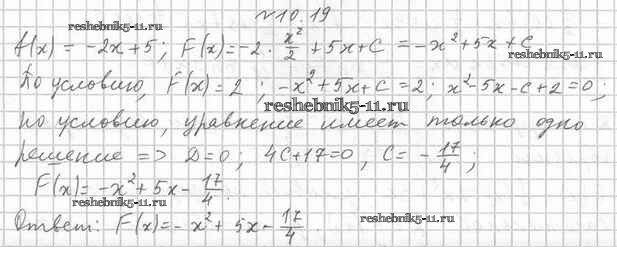 №10.19
reshebnik5-11.ru
f(x) = -2x+5; F(x)=-2·x²/2+5x+C = -x²+5x+C
reshebnik5-11.ru
По условию, F(x)=2; -x²+5x+c=2; x²-5x-c+2=0;
reshebnik5-11.ru
по условию, уравнение имеет только одно
решение => D=0; 4C+17=0, C= -17/4;
F(x)= -x²+5x-17/4.
reshebnik5-11.ru
reshebnik5-11.ru
Ответ: F(x)=-x²+5x-17/4.